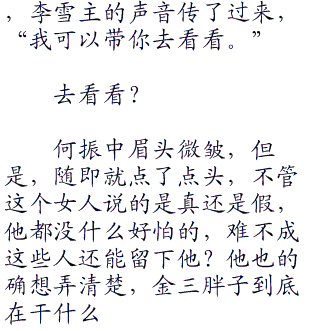 ，李雪主的声音传了过来，
“我可以带你去看看。”
去看看？
何振中眉头微皱，但
是，随即就点了点头，不管
这个女人说的是真还是假，
他都没什么好怕的，难不成
这些人还能留下他？他也的
确想弄清楚，金三胖子到底
在干什么